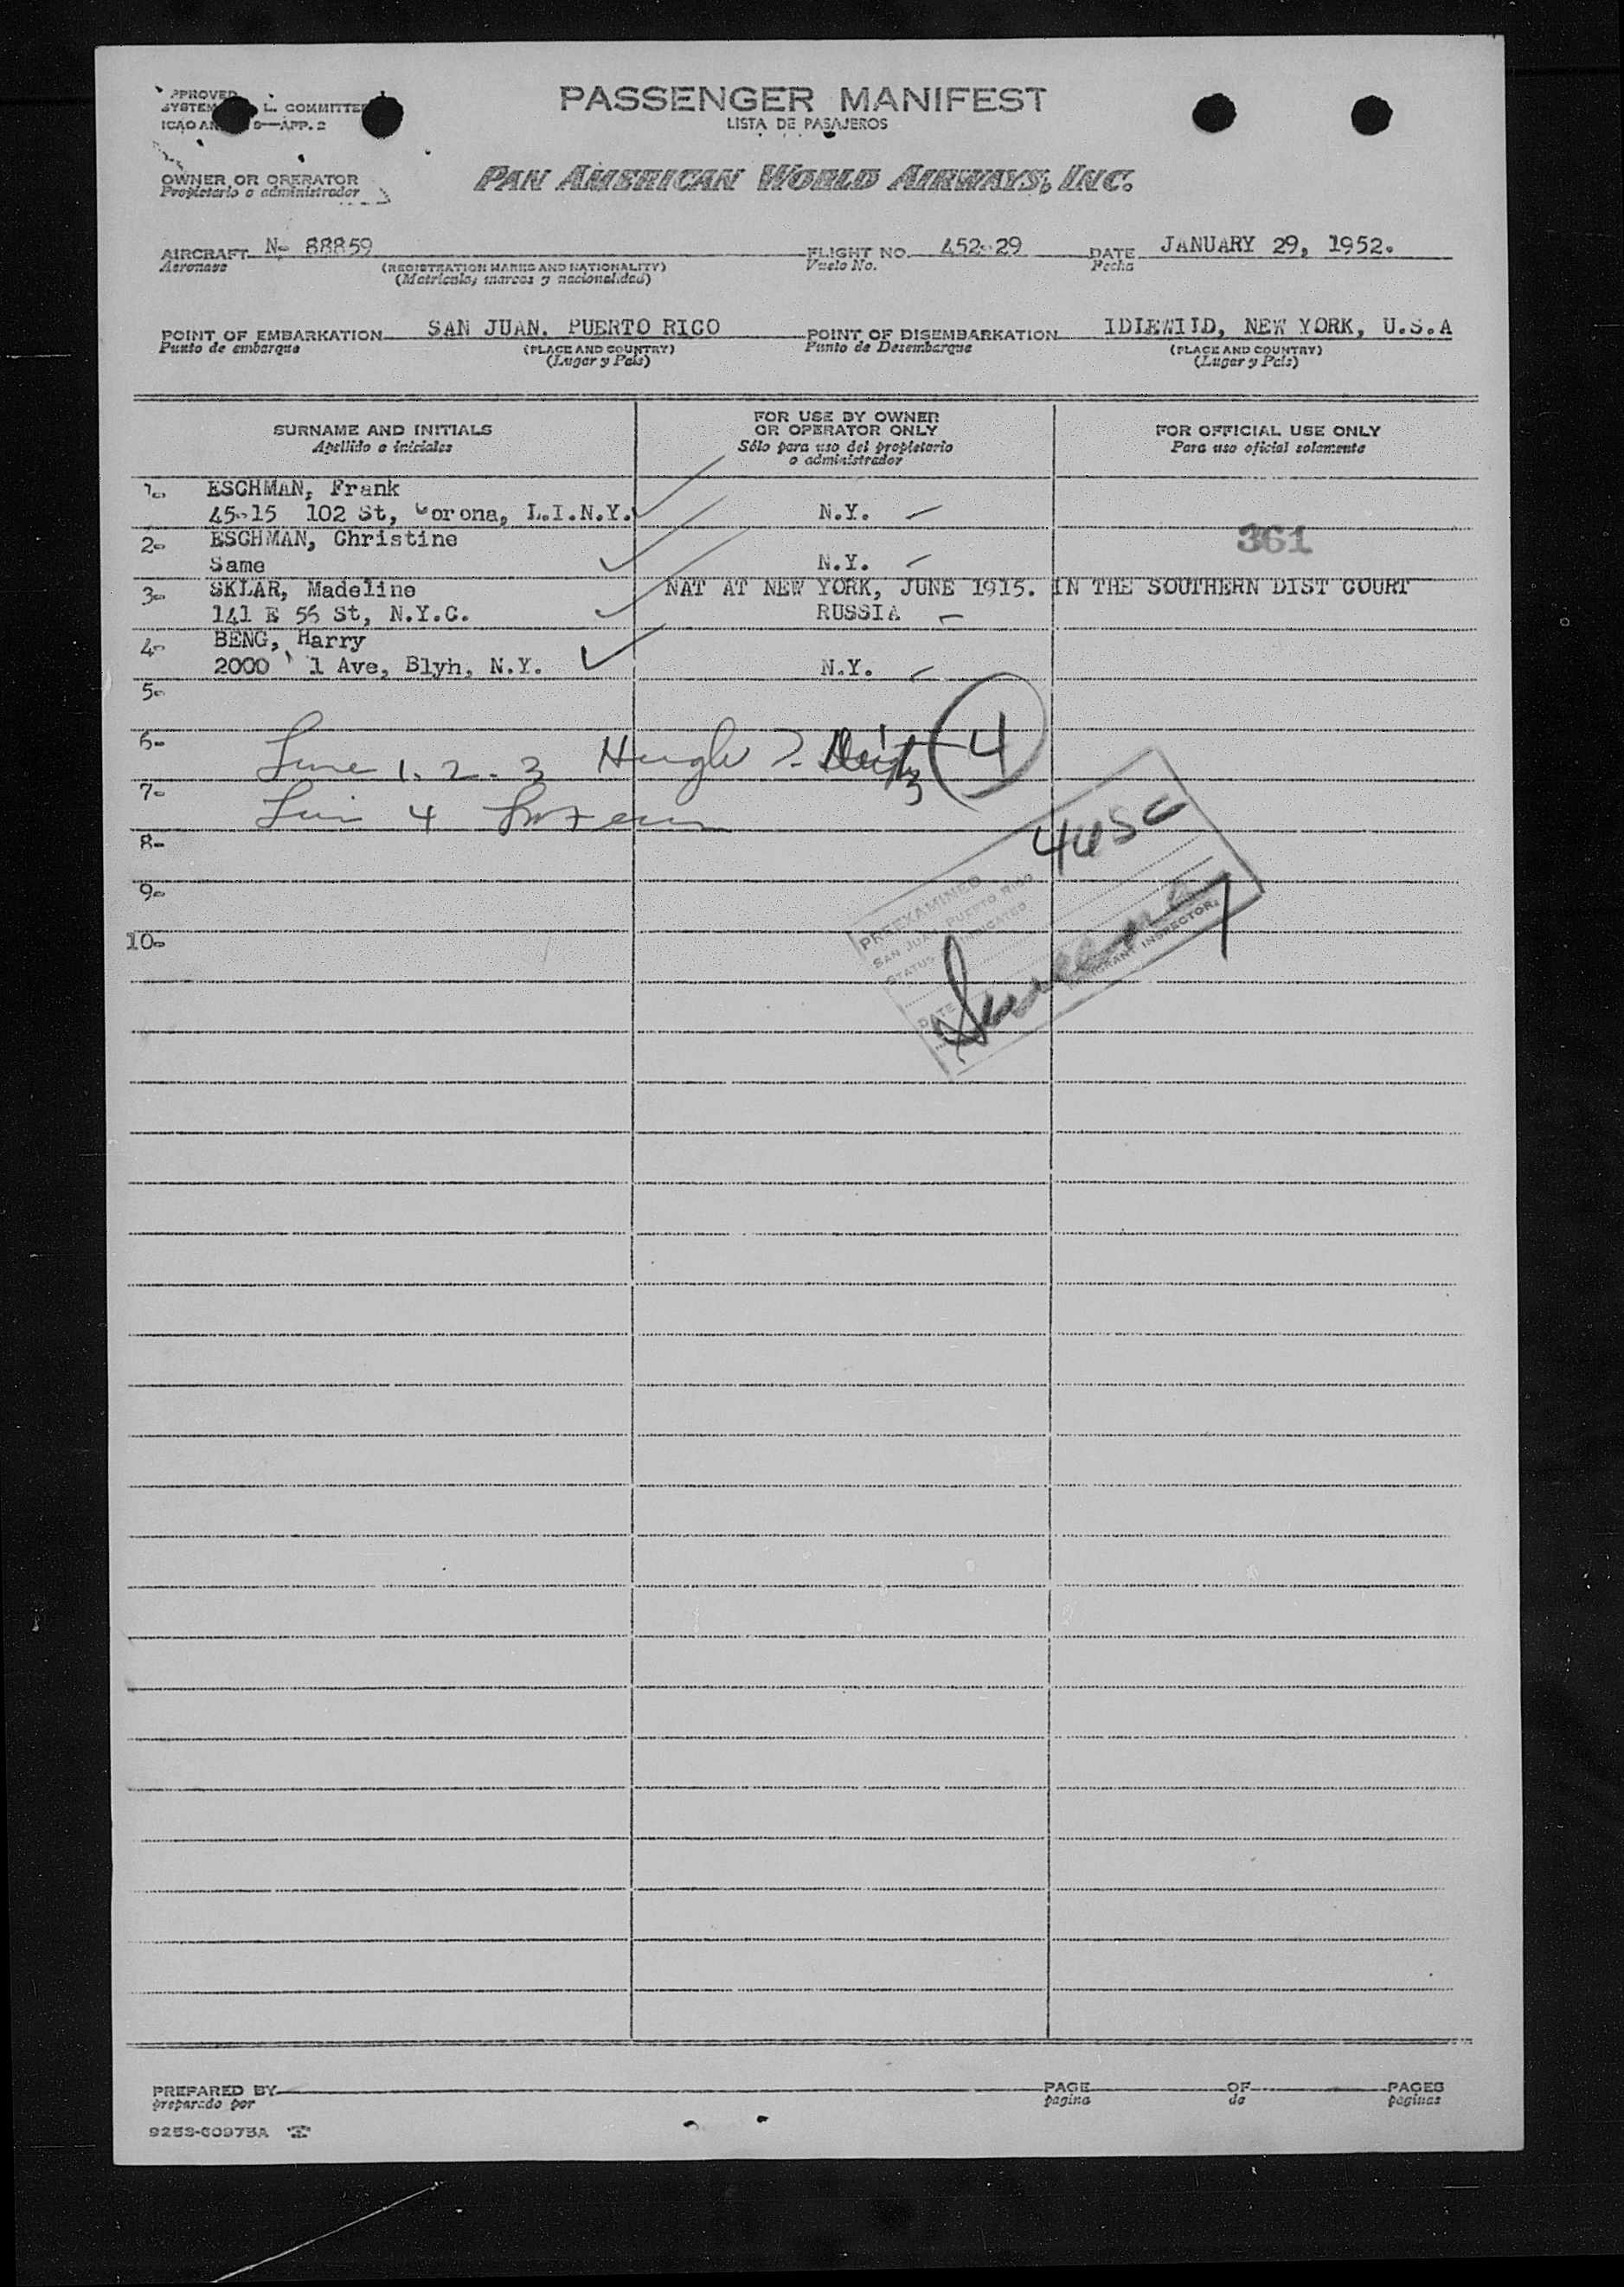 PASSENGER MANIFEST
LISTA DE PASAJEROS
APPROVED
SYSTEM L. COMMITTEE
ICAO APP. 2
OWNER OR OPERATOR
Propietario o administrador
PAN AMERICAN WORLD AIRWAYS, INC.
AIRCRAFT N- 88859 FLIGHT NO. 452-29 DATE JANUARY 29, 1952.
Aeronave (REGISTRATION MARKS AND NATIONALITY) Vuelo No. Fecha
(Matrícula, marcas y nacionalidad)
POINT OF EMBARKATION SAN JUAN. PUERTO RICO POINT OF DISEMBARKATION IDLEWILD, NEW YORK, U.S.A
Punto de embarque (PLACE AND COUNTRY) Punto de Desembarque (PLACE AND COUNTRY)
(Lugar y País) (Lugar y País)
SURNAME AND INITIALS FOR USE BY OWNER OR OPERATOR ONLY FOR OFFICIAL USE ONLY
Apellido e iniciales Sólo para uso del propietario o administrador Para uso oficial solamente
1- ESCHMAN, Frank
45-15 102 St, Corona, L.I.N.Y. N.Y. -
2- ESCHMAN, Christine 361
Same N.Y. -
3- SKLAR, Madeline NAT AT NEW YORK, JUNE 1915. IN THE SOUTHERN DIST COURT
141 E 56 St, N.Y.C. RUSSIA -
4- BENG, Harry
2000 1 Ave, Blyh, N.Y. N.Y. -
5-
6- Line 1. 2. 3 Hugh 4
7- 4
8- 44SC
9-
10-
PREEXAMINED
SAN JUAN PUERTO RICO
STATUS INDICATED
DATE
IMMIGRANT INSPECTOR
PREPARED BY PAGE OF PAGES
preparado por página de páginas
9253-60975A